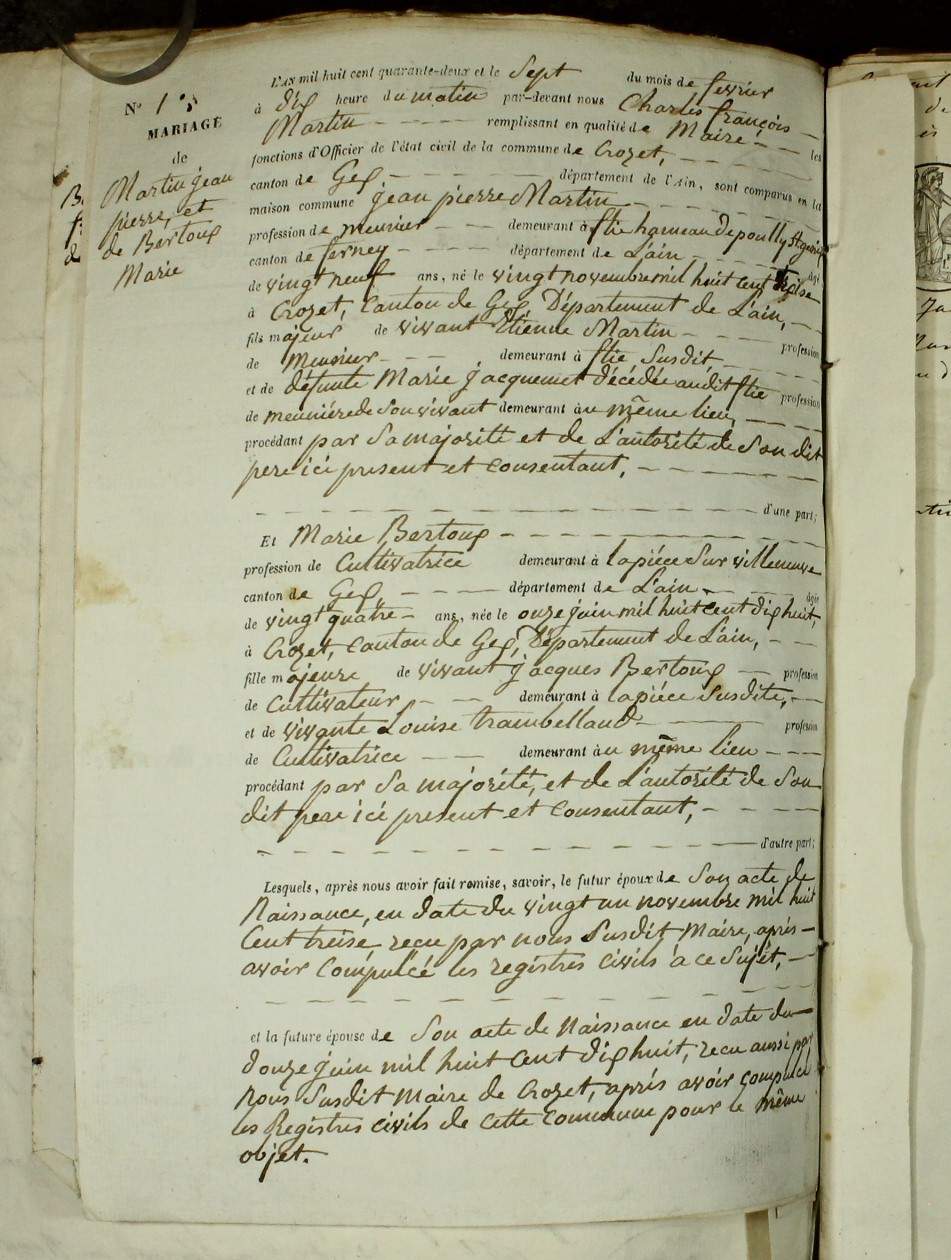 N° 1
MARIAGE
de
Martin jean
pierre, et
de Bertoux
Marie
L'AN mil huit cent quarante-deux et le Sept du mois de fevrier
à dix heure du matin par-devant nous Charles françois
Martin remplissant en qualité de Maire les
fonctions d'Officier de l'état civil de la commune de Crozet,
canton de Gex département de l'Ain, sont comparus en la
maison commune jean pierre Martin
profession de meunier demeurant à flie hameau de pouilly St genix
canton de ferney département de L'ain
de vingt neuf ans, né le vingt novembre mil huit cent treise
à Crozet, Canton de Gex Département de L'ain,
fils majeur de vivant Etienne Martin profession
de Meunier demeurant à flie Susdit
et de défunte Marie jacquemet décédée audit flie profession
de meunière de Son vivant demeurant au même lieu,
procédant par Sa majorité et de L'autorité de Son dit
pere ici present et consentant,
d'une part;
Et Marie Bertoux
profession de Cultivatrice demeurant à lapiéce Sur villeneuve
canton de Gex département de L'ain
de vingt quatre ans, née le onze juin mil huit cent dix huit,
à Crozet, Canton de Gex, Département de L'ain,
fille majeure de vivant jacques Bertoux profession
de Cultivateur demeurant à lapiéce Susdite,
et de vivante Louise trambelland profession
de Cultivatrice demeurant au même lieu
procédant par Sa majorité, et de L'autorité de Son
dit pere ici present et consentant,
d'autre part;
Lesquels, après nous avoir fait remise, savoir, le futur époux de Son acte de
Naissance, en date du vingt un novembre mil huit
Cent treise recu par nous Susdit Maire, aprés
avoir compulcé les registres civils à ce Sujét,
et la future épouse de Son acte de Naissance en date du
douze juin mil huit Cent dix huit, recu aussi par
nous Susdit Maire de Crozet, aprés avoir compulcé
les Registres civils de cette Commune pour le même
objet.